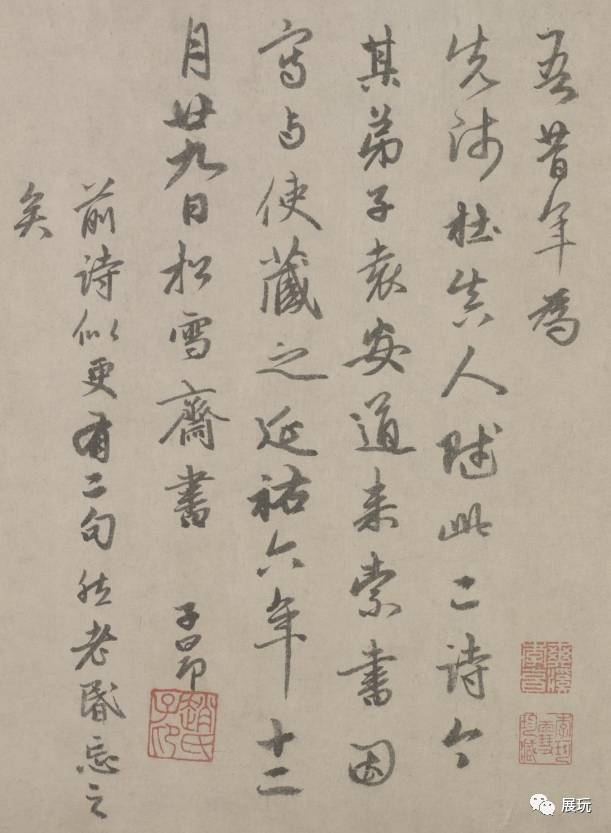 吾昔年為
先師杜真人賦此二詩今
其弟子袁安道来索書因
寫与使藏之延祐六年十二
月廿九日松雪齋書 子昂
前詩似更有二句然老昏忘之
矣
趙氏子昂
展玩